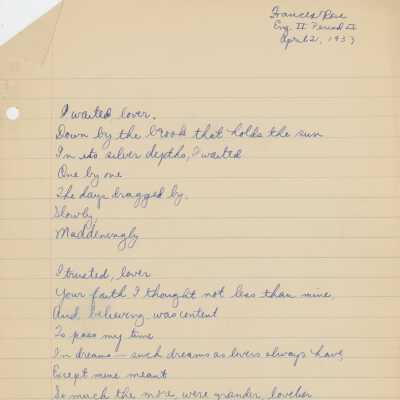 Frances Rose
Eng. II Period II
April 2, 1937
I waited lover.
Down by the brook that holds the sun
In its silver depths, I waited
One by one
The days dragged by.
Slowly,
Maddeningly
I trusted, lover
Your faith I thought not less than mine,
And believing was content
To pass my time
In dreams — such dreams as lovers always have,
Except mine meant
So much the more, were grander, lovelier